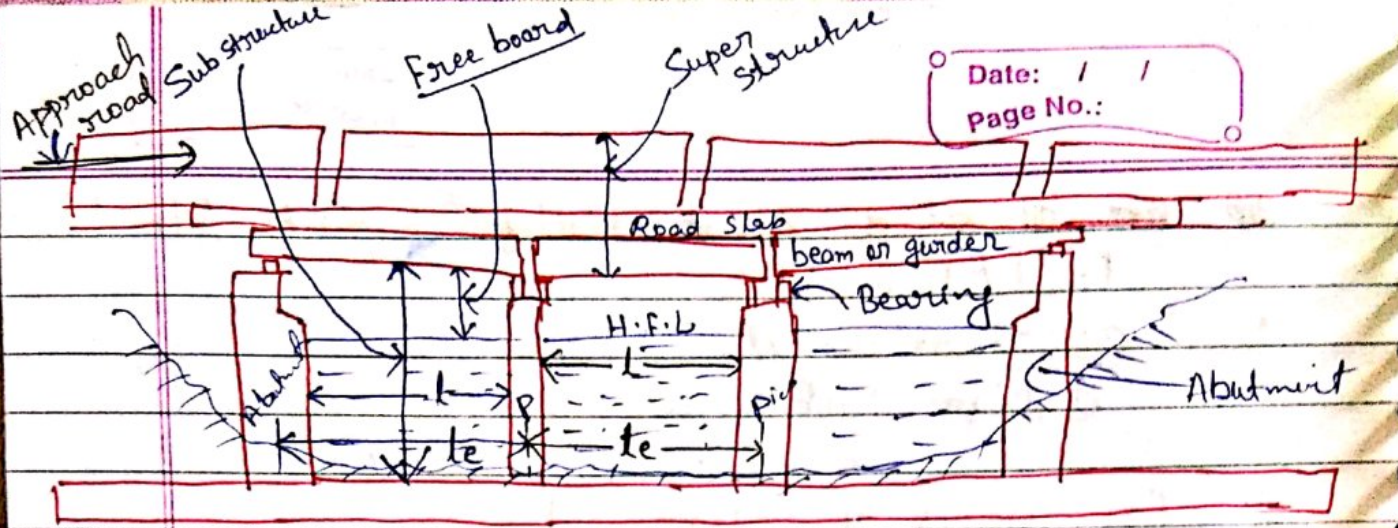 Approach
road
Substructure
Free board
Super
structure
Date: / /
Page No.:
Road Slab
beam or gurder
Bearing
H.F.L
L
l
Abutment
P
pier
te
te
Abutment